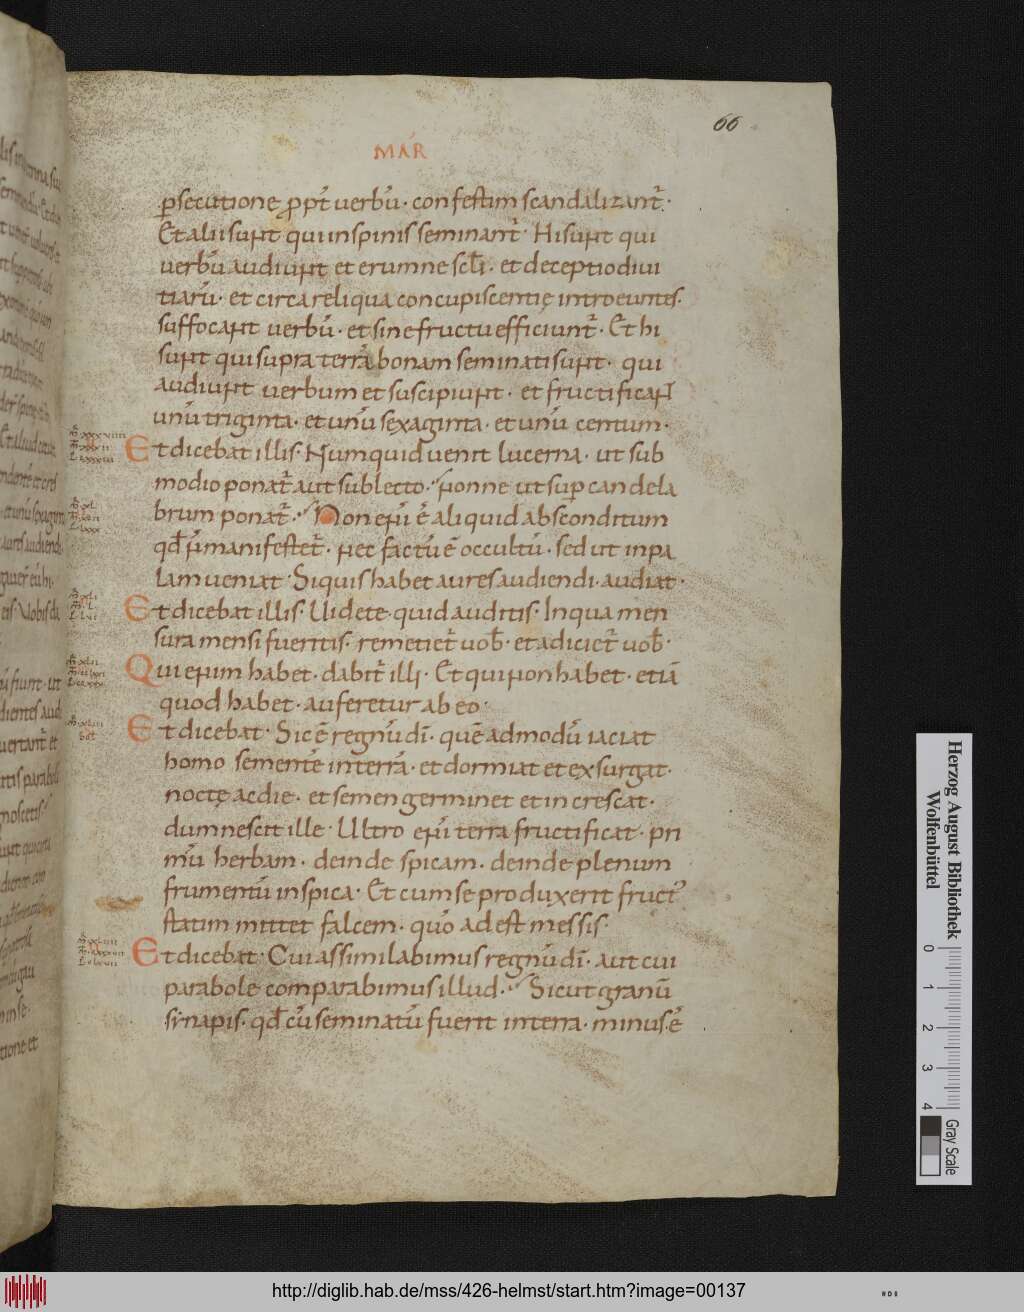 66
MAR
p̱secutione ꝓpt̄ uerbū· confestim scandalizant᷑·
Et alii sunt qui inspinis seminant᷑· Hisunt qui
uerbū audiunt et erumne scl̄i· et deceptio diui
tiarū· et circa reliqua concupiscentię introeuntes·
suffocant uerbū· et sine fructu efficiunt᷑· Et hi
sunt qui supra terrā bonam seminati sunt· qui
audiunt uerbum et suscipiunt· et fructificant
unū triginta· et unū sexaginta· et unū centum·
Et dicebat illis· Numquid uenit lucerna· ut sub
modio ponat᷑ aut sub lecto· nonne ut sup̱ candela
brum ponat᷑· Non enī ē aliquid absconditum
qd̄ ń manifestet᷑· nec factū ē occultū· sed ut inpa
lam ueniat· Siquis habet aures audiendi· audiat·
Et dicebat illis· Uidete quid auditis· Inqua men
sura mensi fueritis· remetiet᷑ uob̄· et adiciet᷑ uob̄·
Qui enim habet· dabit᷑ illi· Et qui non habet· etiā
quod habet· auferetur ab eo·
Et dicebat· Sic ē regnū dī· quē admodū iaciat
homo sementē interrā· et dormiat et exsurgat·
noctę ac die· et semen germinet et increscat·
dum nescit ille· Ultro enī terra fructificat· pri
mū herbam· deinde spicam· deinde plenum
frumentū inspica· Et cum se produxerit fruct᷒
statim mittet falcem· quō adest messis·
Et dicebat· Cui assimilabimus regnū dī· aut cui
parabole comparabimus illud· Sicut granū
synapis· qd̄ cū seminatū fuerit interra· minus ē
Herzog August Bibliothek
Wolfenbüttel
0 1 2 3 4
Gray Scale
http://diglib.hab.de/mss/426-helmst/start.htm?image=00137